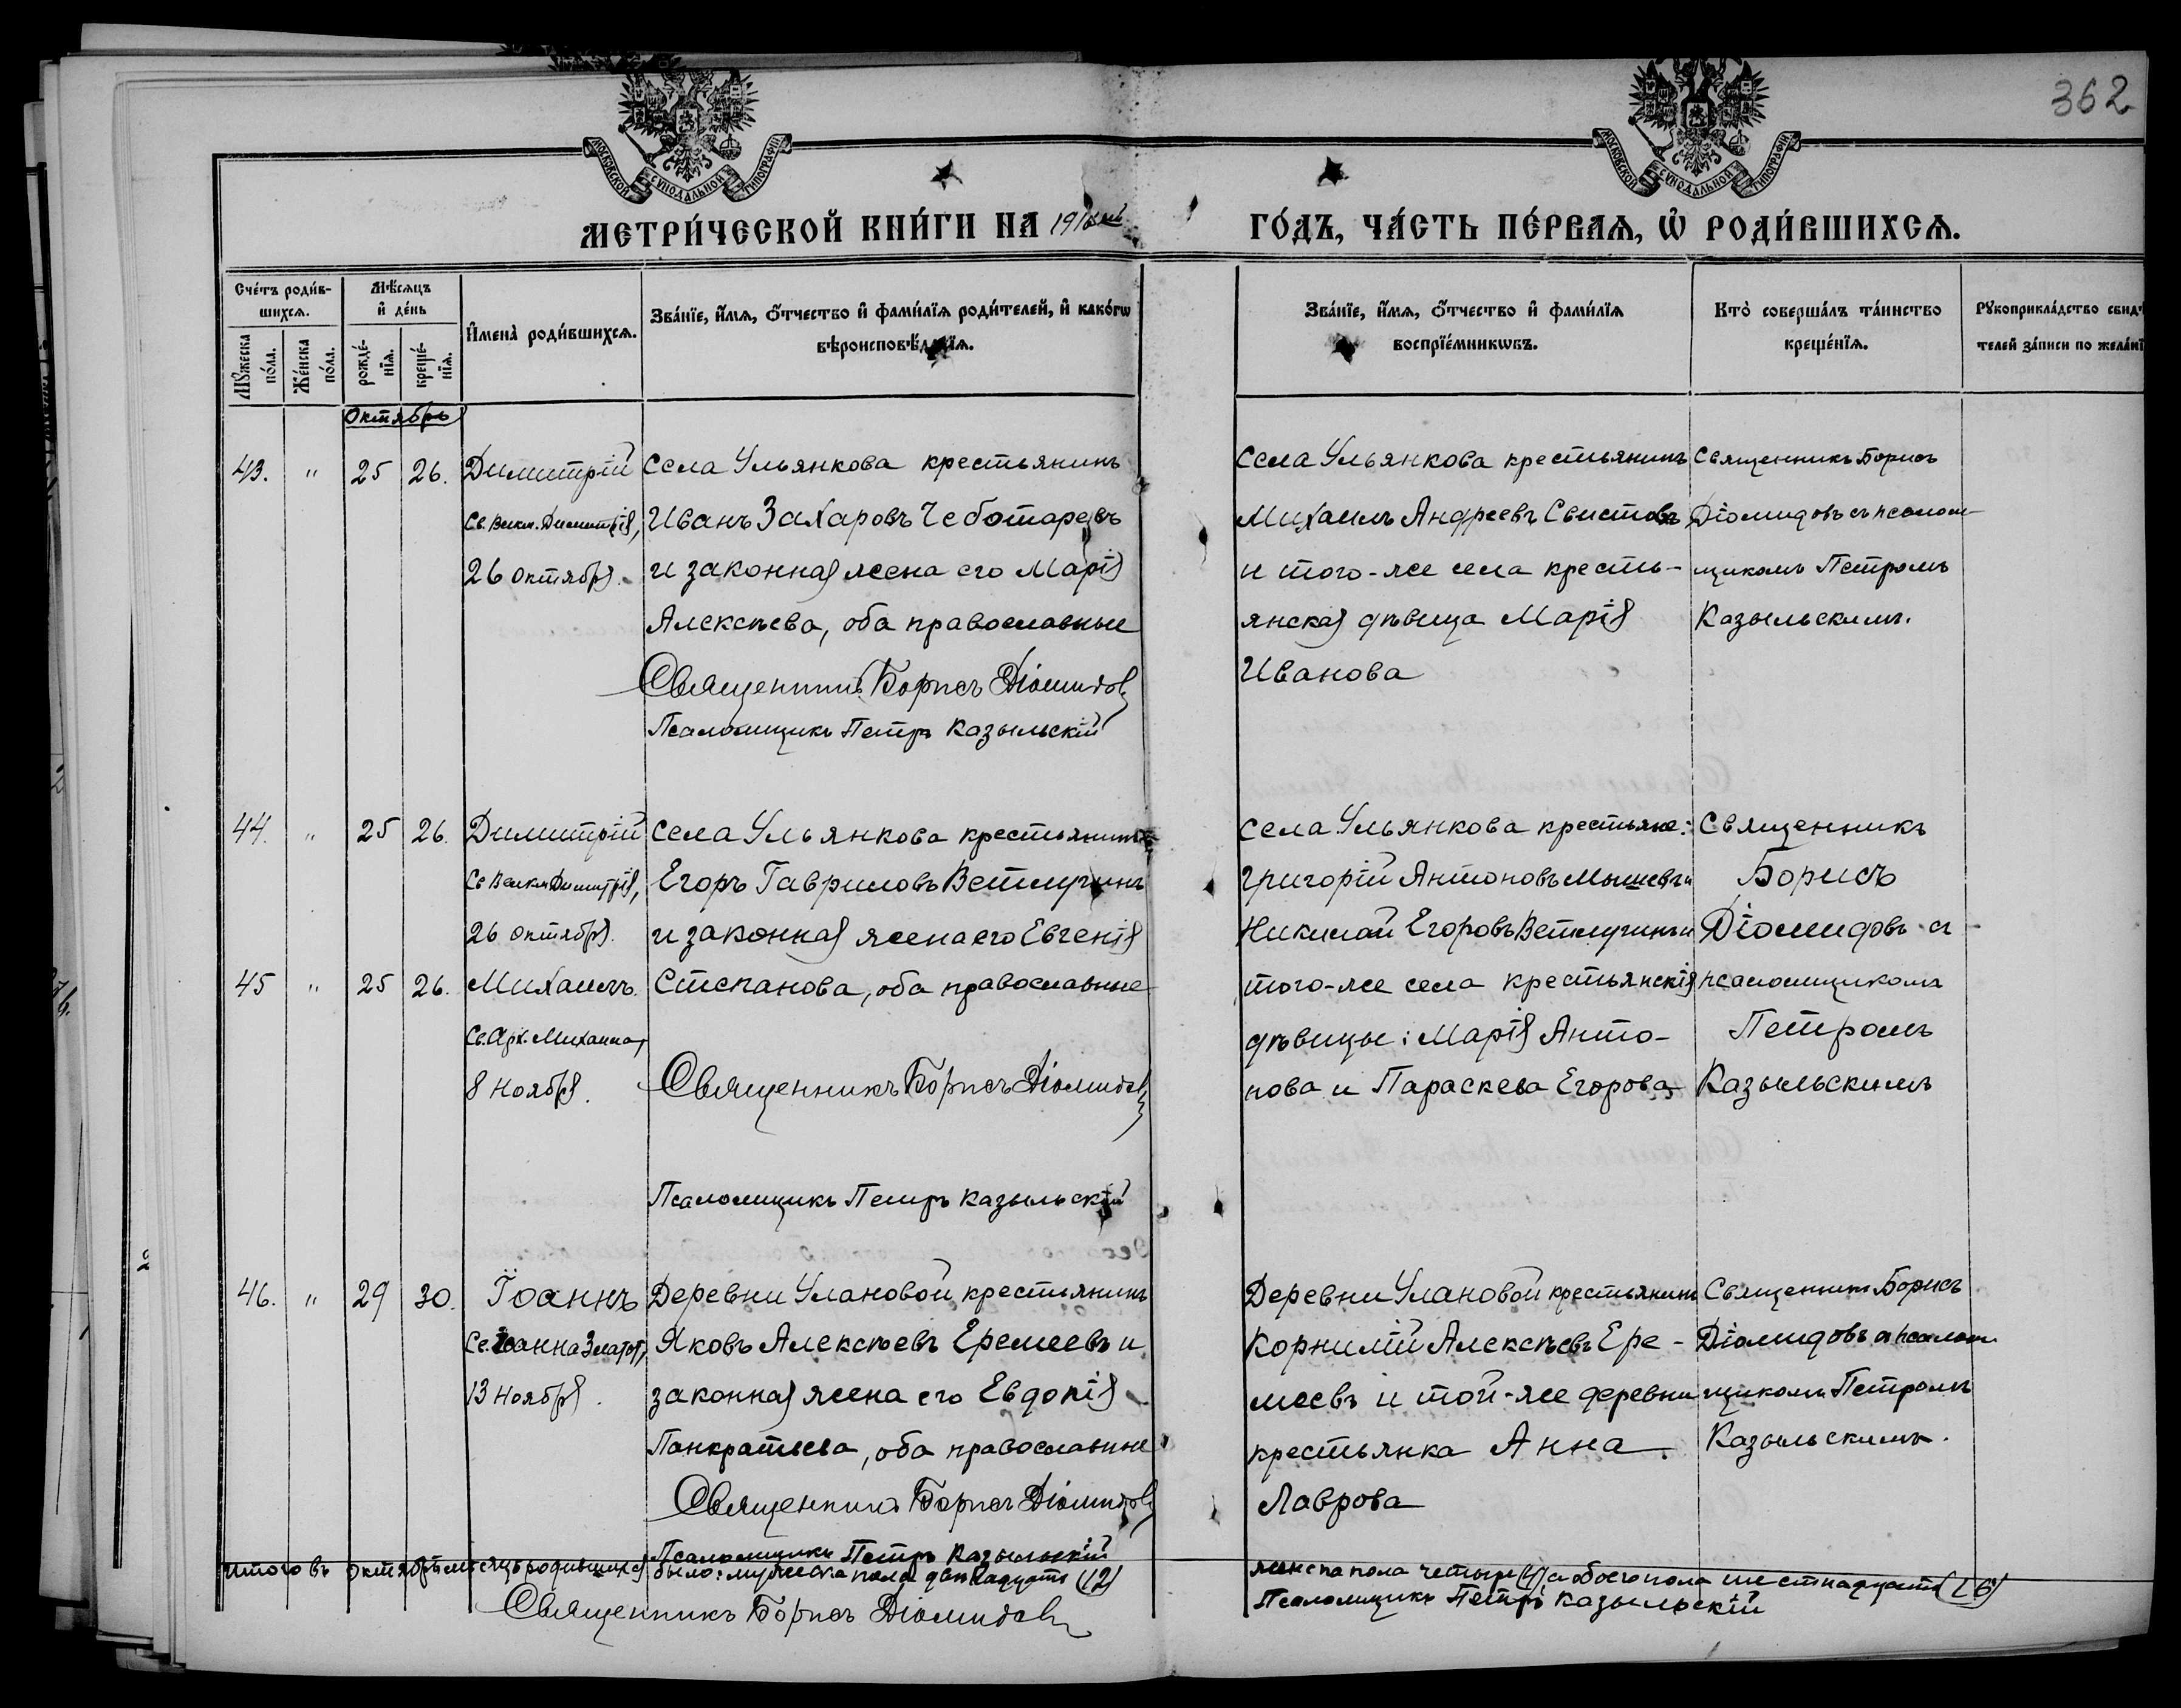 362
МОСКОВСКОЙ СѴНОДАЛЬНОЙ ТИПОГРАФІИ
МОСКОВСКОЙ СѴНОДАЛЬНОЙ ТИПОГРАФІИ
МЕТРИ́ЧЕСКОЙ КНИ́ГИ НА
ГО́ДЪ, ЧА́СТЬ ПЕ́РВАѦ, Ѡ҆ РОДИ́ВШИХСѦ.
Сче́тъ роди́в-
шихсѧ.
Мѣ́сѧцъ
и҆ де́нь
Мꙋ́жеска по́ла.
Же́нска по́ла.
рожде́-нїѧ.
креще́-нїѧ.
И҆мена̀ роди́вшихсѧ.
Зва́нїе, и҆́мѧ, ѻ҆́тчество и҆ фами́лїѧ роди́телей, и҆ како́гѡ
вѣроисповѣ́данїѧ.
Зва́нїе, и҆́мѧ, ѻ҆́тчество и҆ фами́лїѧ
воспрїе́мникѡвъ.
Кто̀ соверша́лъ та́инство
креще́нїѧ.
Рꙋкоприкла́дство свидѣ́-
телей за́писи по жела́нї
Октябрь
43. " 25 26.
Димитрій
Св. Велм. Димитрія,
26 Октября.
Села Ульянкова крестьянинъ
Иванъ Захаровъ Чеботаревъ
и законная жена его Марія
Алексѣева, оба православные
Священникъ Борисъ Діомидовъ
Псаломщикъ Петръ Казыльскій
Села Ульянкова крестьянинъ
Михаилъ Андреевъ Свистовъ
и того-же села кресть-
янская дѣвица Марія
Иванова
Священникъ Борисъ
Діомидовъ съ псалом-
щикомъ Петромъ
Казыльскимъ.
44. " 25 26.
Димитрій
Св Велкм Димитрія,
26 Октября.
45 " 25 26.
Михаилъ.
Св. Арх. Михаила,
8 Ноября.
Села Ульянкова крестьянинъ
Егоръ Гавриловъ Ветлугинъ
и законная жена его Евгенія
Степанова, оба православные
Священникъ Борисъ Діомидовъ
Псаломщикъ Петръ Казыльскій
Села Ульянкова крестьяне:
Григорій Антоновъ Мышевъ и
Николай Егоровъ Ветлугинъ и
того-же села крестьянскія
дѣвицы: Марія Анто-
нова и Параскева Егорова
Священникъ
Борисъ
Діомидовъ съ
псаломщикомъ
Петромъ
Казыльскимъ
46. " 29 30.
Іоаннъ
Св. Іоанна Златоу.,
13 Ноября.
Деревни Улановой крестьянинъ
Яковъ Алексѣевъ Еремеевъ и
законная жена его Евдокія
Панкратьева, оба православные
Священникъ Борисъ Діомидовъ
Псаломщикъ Петръ Казыльскій
Деревни Улановой крестьянинъ
Корнилій Алексѣевъ Ере-
меевъ и той-же деревни
крестьянка Анна
Лаврова
Священникъ Борисъ
Діомидовъ съ псалом-
щикомъ Петромъ
Казыльскимъ.
Итого въ Октябрѣ мѣсяцѣ родившихся было: мужеска пола двѣнадцать (12)
женска пола четыре (4), а обоего пола шестнадцать (16)
Священникъ Борисъ Діомидовъ
Псаломщикъ Петръ Казыльскій